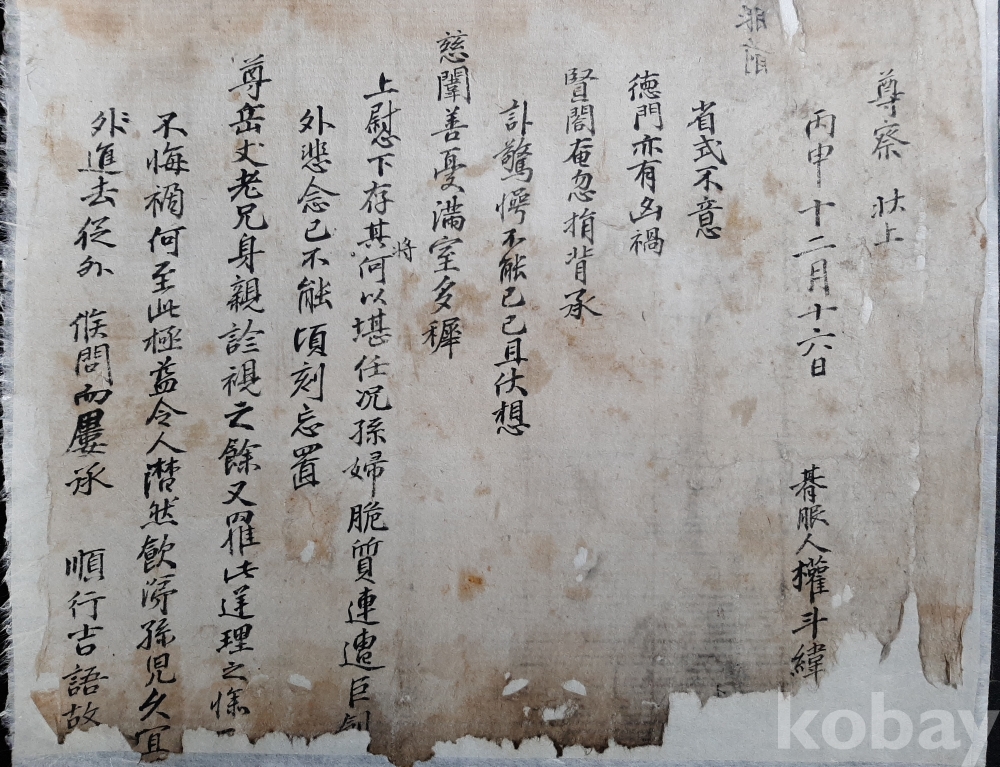 尊察 狀上
丙申十二月十六日 朞服人權斗緯
省式不意
德門亦有凶禍
賢閤奄忽捐背承
訃驚愕不能已已且伏想
慈闈善憂滿室多稺
上慰下存其將何以堪任况孫婦脆質連遭巨創
外悲念已不能頃刻忘置
尊岳丈老兄身親診視之餘又罹此逆理之慘
不悔禍何至此極益令人潸然飮涕孫兒久宜
外進去從外 候問而屢承 順行吉語故
kobay